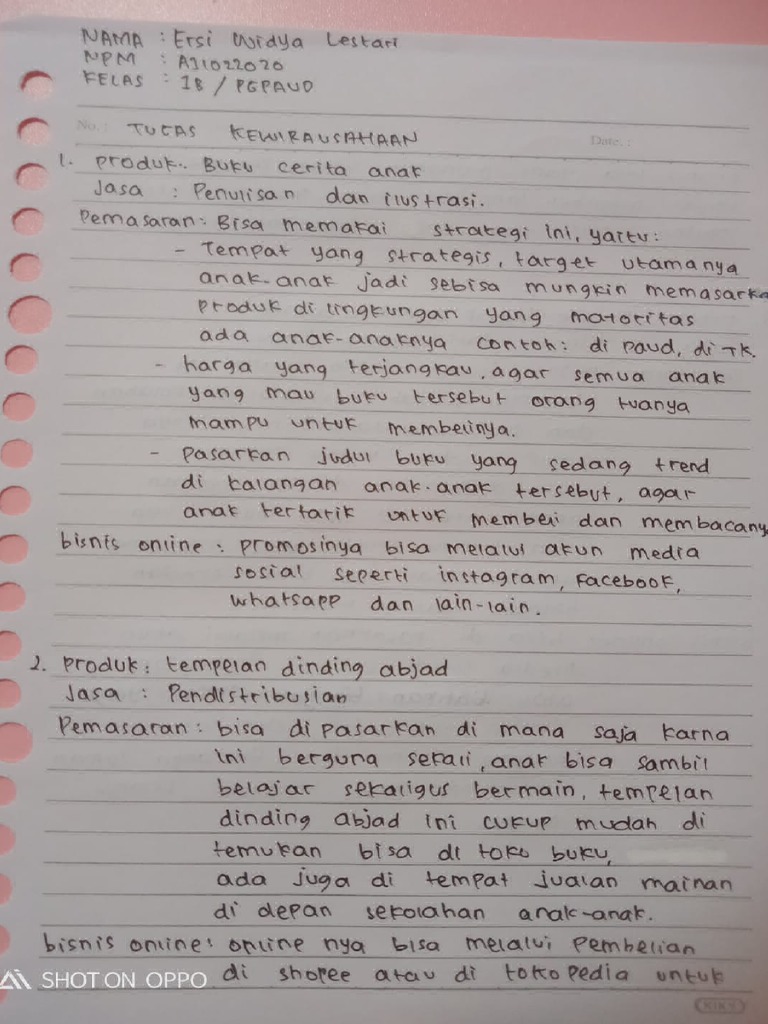 NAMA : Ersi Widya Lestari
NPM : A31022020
KELAS : 1B / PGPAUD
No.: TUGAS KEWIRAUSAHAAN Date.:
1. produk : Buku cerita anak
Jasa : Penulisan dan ilustrasi.
Pemasaran : Bisa memakai strategi ini, yaitu :
- Tempat yang strategis, target utamanya
anak-anak jadi sebisa mungkin memasarka
produk di lingkungan yang matoritas
ada anak-anaknya contoh : di paud, di TK.
- harga yang terjangkau, agar semua anak
yang mau buku tersebut orang tuanya
mampu untuk membelinya.
- pasarkan judul buku yang sedang trend
di kalangan anak-anak tersebut, agar
anak tertarik untuk membeli dan membacany
bisnis online : promosinya bisa melalui akun media
sosial seperti instagram, Facebook,
whatsapp dan lain-lain.
2. produk : tempelan dinding abjad
Jasa : Pendistribusian
Pemasaran : bisa di pasarkan di mana saja karna
ini berguna sekali, anak bisa sambil
belajar sekaligus bermain, tempelan
dinding abjad ini cukup mudah di
temukan bisa di toko buku,
ada juga di tempat jualan mainan
di depan sekolahan anak-anak.
bisnis online : online nya bisa melalui pembelian
di shopee atau di tokopedia untuk
SHOT ON OPPO
KIKY